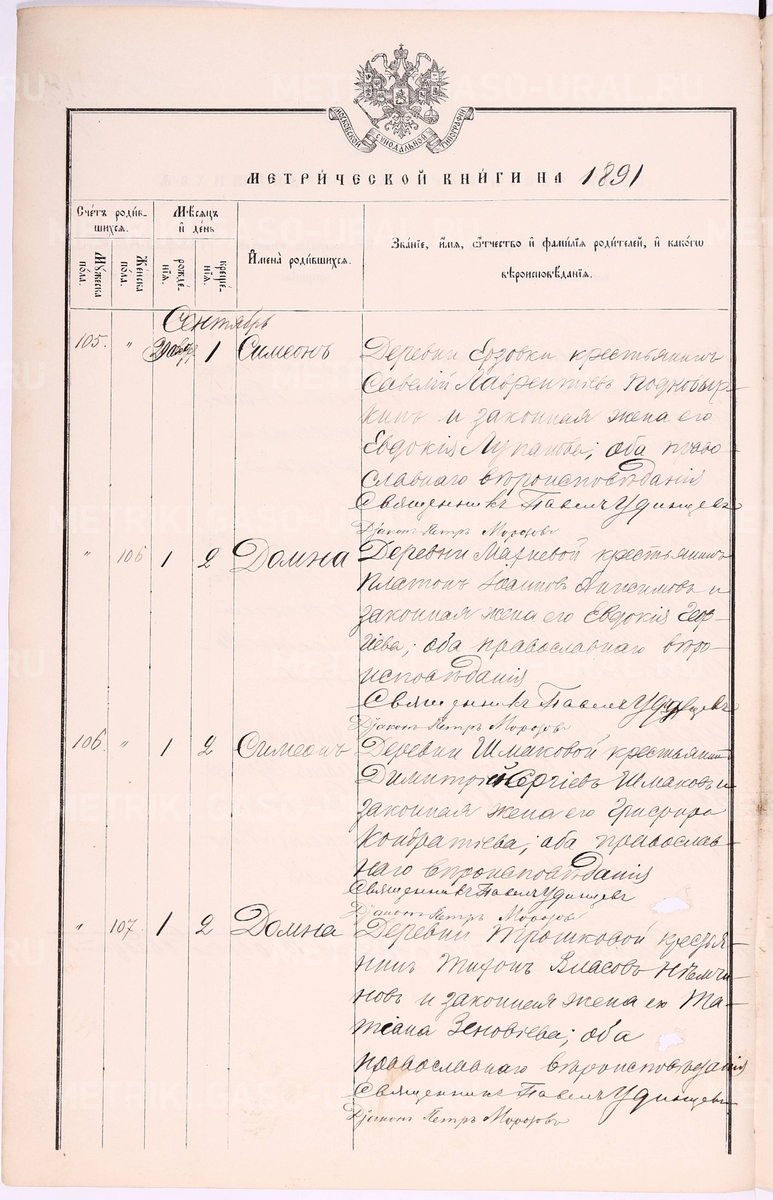 МОСКОВСКОЙ СѴНОДАЛЬНОЙ ТИПОГРАФІИ
МЕТРИ́ЧЕСКОЙ КНИ́ГИ НА 1891
Сче́тъ роди́вшихся.
Мѣ́сяцъ и҆ де́нь
И҆мена̀ роди́вшихся.
Зва́нїе, и҆́мя, ѻ҆́тчество и҆ фами́лїя роди́телей, и҆ како́гѡ вѣроисповѣ́данїя.
Мꙋ́жеска по́ла.
Же́нска по́ла.
рожде́нїя.
креще́нїя.
Сентябрь
105. " 1 Симеонъ Деревни Ерзовки крестьянинъ
Савелій Лаврентіевъ
и законная жена его
Евдокія Лупапова; оба право-
славнаго вѣроисповѣданія
Священникъ Павелъ Удинцевъ
Діаконъ Петръ Морозовъ
" 106 1 2 Домна Деревни Махневой крестьянинъ
Платонъ Іоанновъ Анисимовъ и
законная жена его Евдокія Геор-
гіева; оба православнаго вѣро-
исповѣданія
Священникъ Павелъ Удинцевъ
Діаконъ Петръ Морозовъ
106. " 1 2 Симеонъ Деревни Шмаковой крестьянинъ
Димитрій Сергіевъ Шмаковъ и
законная жена его
Кондратіева; оба православ-
наго вѣроисповѣданія
Священникъ Павелъ Удинцевъ
Діаконъ Петръ Морозовъ
" 107. 1 2 Домна Деревни Трошковой крестья-
нинъ Тихонъ Власовъ Нѣмчи-
новъ и законная жена ею Та-
тіана Зеновіева; оба
православнаго вѣроисповѣданія
Священникъ Павелъ Удинцевъ
Діаконъ Петръ Морозовъ
METRIKI.GASO-URAL.RU